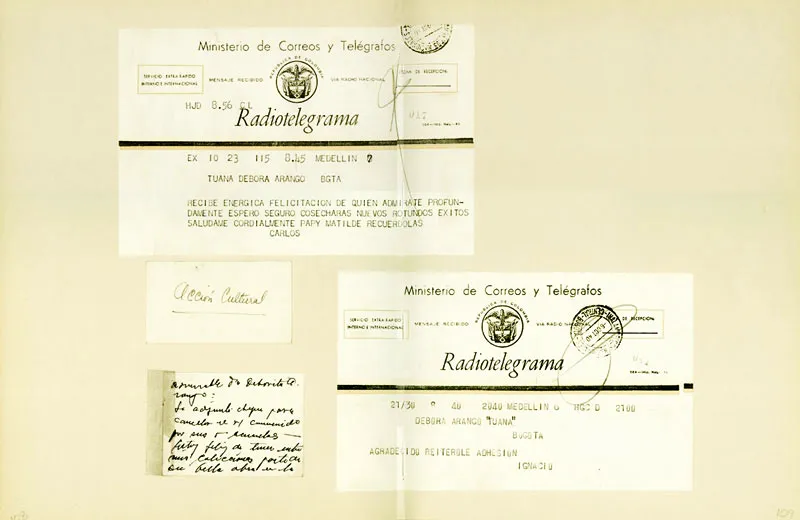 Ministerio de Correos y Telégrafos
REPUBLICA DE COLOMBIA
SERVICIO EXTRA-RAPIDO
INTERNO E INTERNACIONAL
MENSAJE RECIBIDO
VIA RADIO NACIONAL
DE RECEPCION
HJD 8.56 CL
Radiotelegrama
EX 10 23 115 8.45 MEDELLIN 7
TUANA DEBORA ARANGO BGTA
RECIBE ENERGICA FELICITACION DE QUIEN ADMIRATE PROFUN-
DAMENTE ESPERO SEGURO COSECHARAS NUEVOS ROTUNDOS EXITOS
SALUDAME CORDIALMENTE PAPY MATILDE RECUERDOLAS
CARLOS
Acción Cultural
Ministerio de Correos y Telégrafos
REPUBLICA DE COLOMBIA
SERVICIO EXTRA-RAPIDO
INTERNO E INTERNACIONAL
MENSAJE RECIBIDO
VIA RADIO
DE RECEPCION
Radiotelegrama
21/30 9 40 2040 MEDELLIN 6 2100
DEBORA ARANGO "TUANA"
BOGOTA
AGRADECIDO REITEROLE ADHESION
IGNACIO
Deborita
rango:
adjunto cheque para
cancelar el
por sus
feliz de tener entre
mis colecciones
bella obra
109